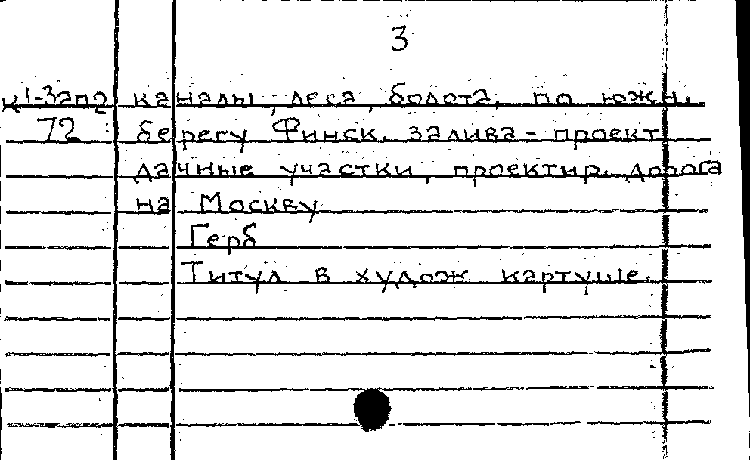 3
К1-Зап2 каналы, леса, болота, по южн.
72 берегу Финск. залива - проект
дачные участки, проектир. дорога
на Москву
Герб
Титул в худож картуше.